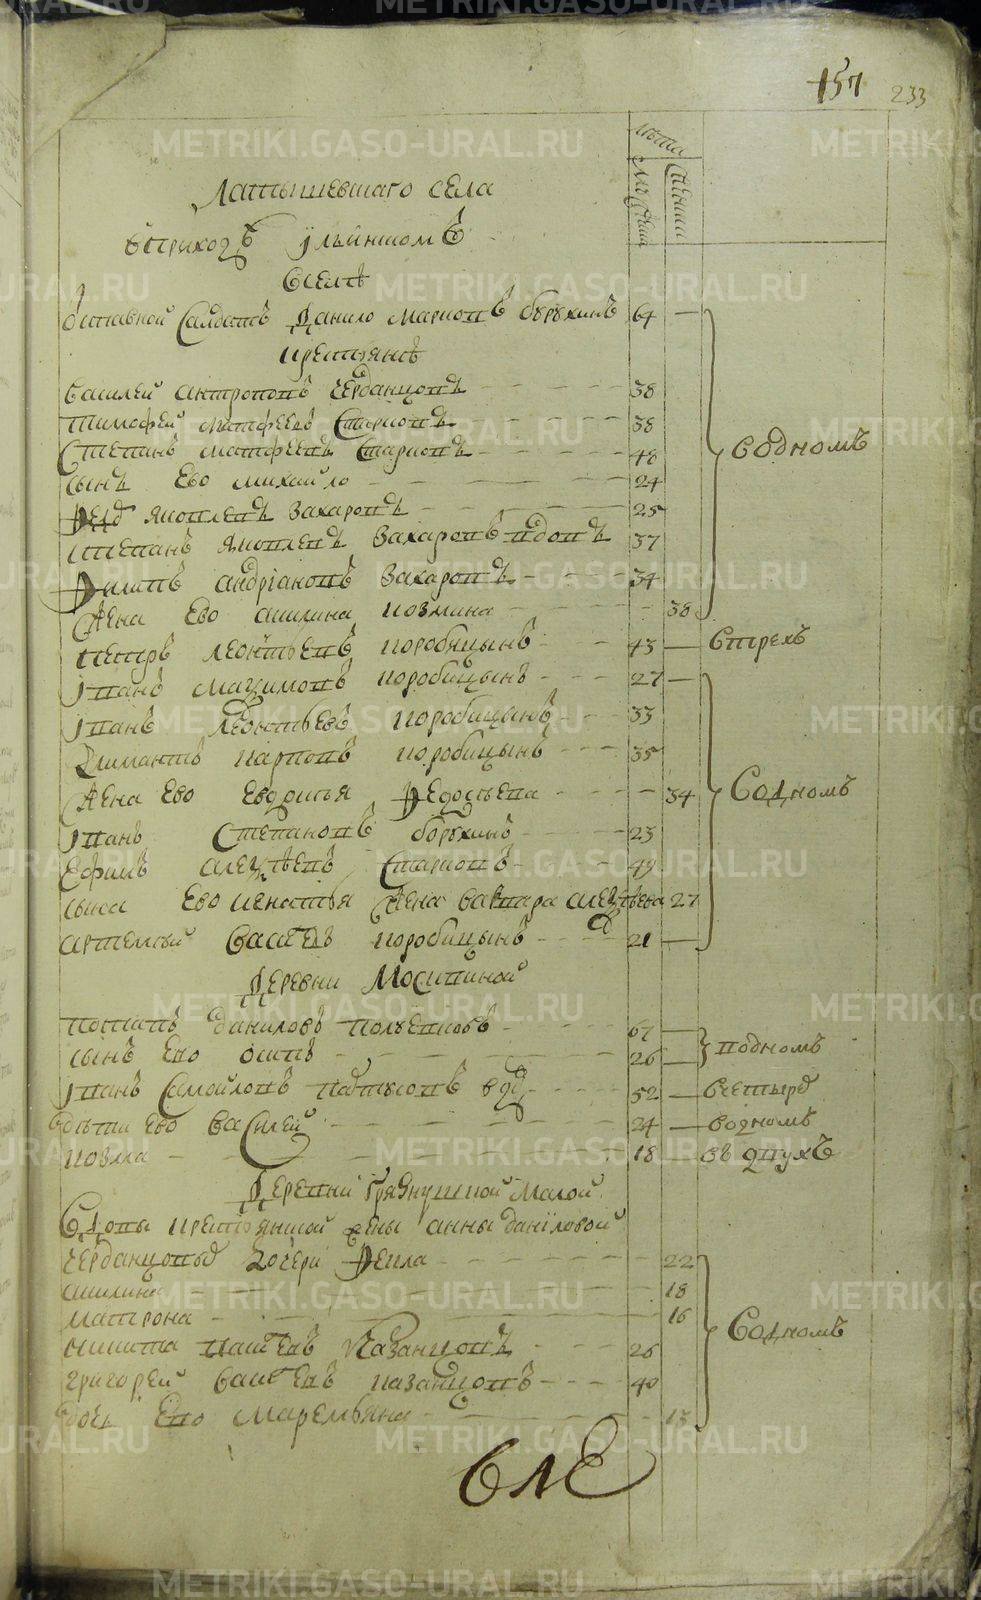 157 233
лѣта
Латышевскаго села
в приходѣ ильинскомъ
в селѣ
Отставной салдатъ Данило Марковъ бурухинъ 64 —
крестьянъ
василей антроповъ черданцовъ 38
тимофей матфеевъ Старковъ 38
Степанъ матфеевъ Старковъ 48
сынъ ево михайло 24
Фед яковлевъ Захаровъ 25
степанъ яковлевъ Захаровъ вдовъ 37
Филипъ андріановъ Захаровъ 34
Жена ево акилина козмина 38
в одномъ
петръ леонтьевъ коробицынъ 43 — в трехъ
Иванъ Маѯимовъ коробицынъ 27 —
Иванъ леонтьевъ коробицынъ 33
Климантъ карповъ коробицынъ 35
Жена ево евдокия Федосеева 34
Иванъ Степановъ борухинъ 23
Ефимъ алеѯѣевъ Старковъ 49
сына ево игнатья Жена варвара алеѯѣева 27
артемей Васильевъ коробицынъ 21 —
В одномъ
Деревни Мосиной
потапъ даниловъ 67 —
сынъ ево осипъ 26 —
в одномъ
Иванъ Самойловъ 52 — в четыре
дѣти ево Василей 24 — в одномъ
козма 18 в двухъ
Деревни Грязнушки Малой
вдовы крестьянской жены анны даниловой
черданцовы дочери Фекла 22
акилина 18
матрона 16
никита Казанцовъ 26
григорей василевъ казанцовъ 40
дочь ево Маремьяна 13
В одномъ